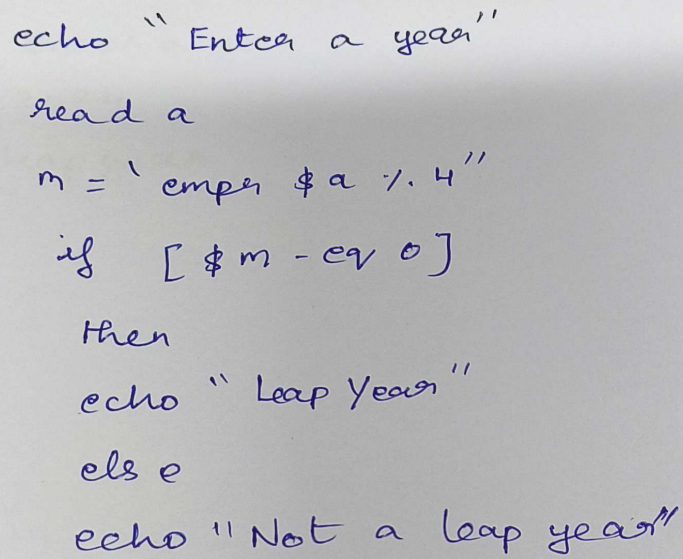 echo " Enter a year"
read a
m = ` emper $ a % 4"
if [ $ m - eq 0 ]
then
echo " Leap Year"
else
echo "Not a leap year"